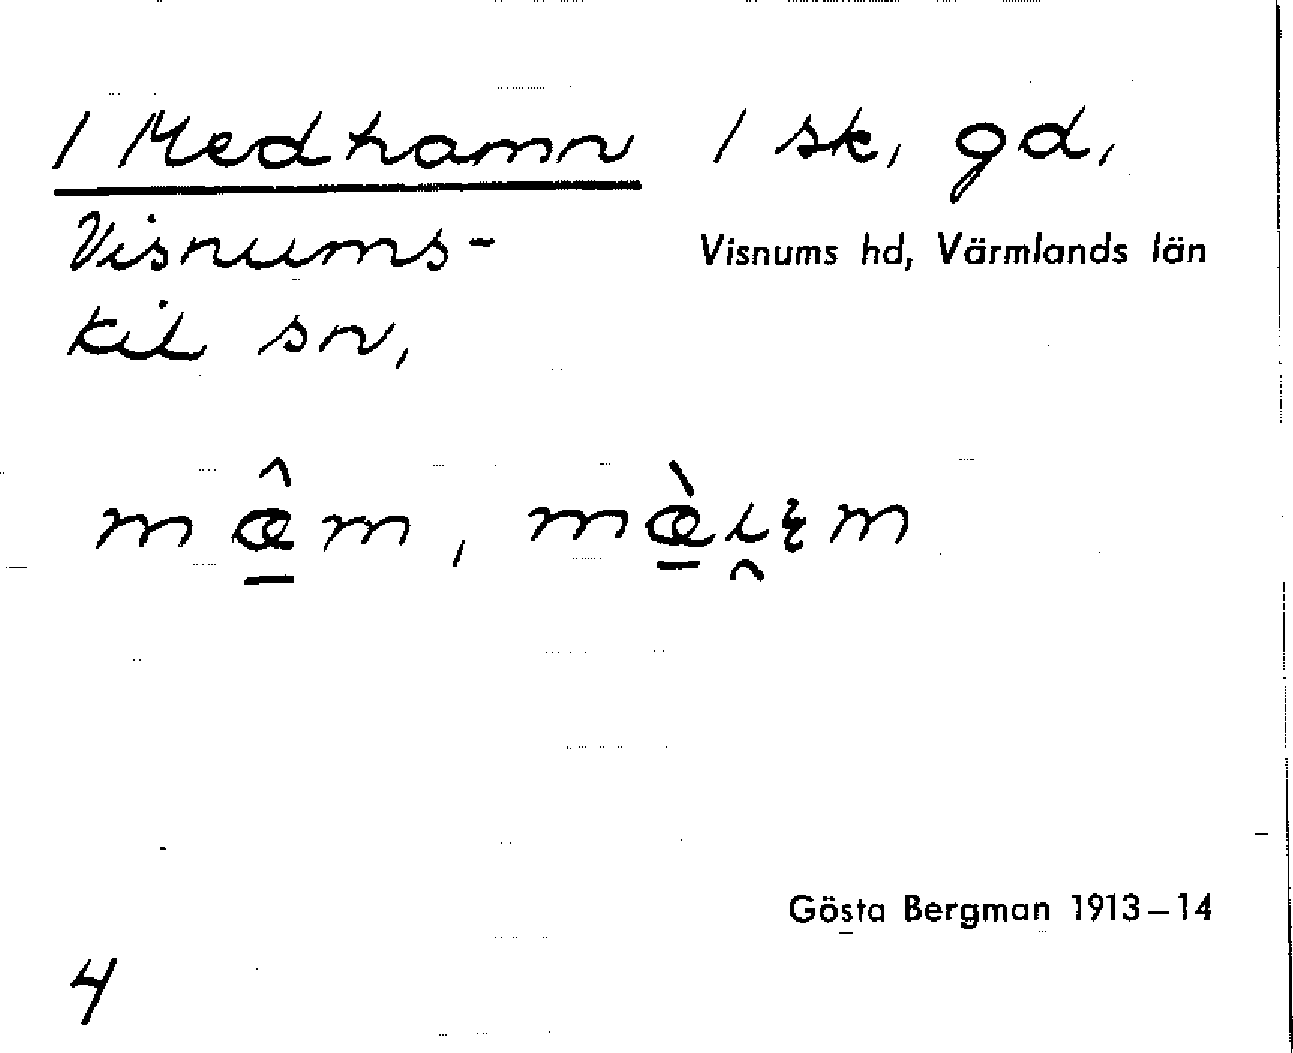 / Medhamn / sk, gd,
Visnums-
kil sn,
Visnums hd, Värmlands län
mæ̱̂m, mæ̱̀i̯ꜫm
Gösta Bergman 1913–14
4